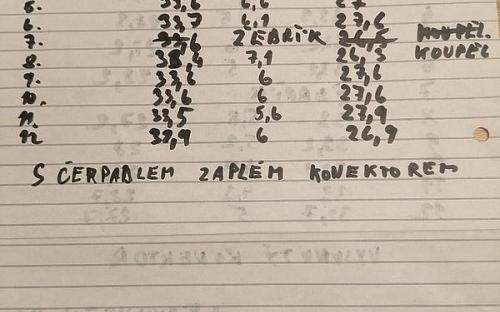 5. 33,6 6,6 27
6. 33,7 6,1 27,6
7. 33,6 ŽEBŘÍK 26,5 KOUPEL.
8. 33,4 7,1 26,3 KOUPEL
9. 33,6 6 27,6
10. 33,6 6 27,6
11. 33,5 5,6 27,9
12 33,9 6 26,9
S ČERPADLEM ZAPLÉM KONEKTOREM